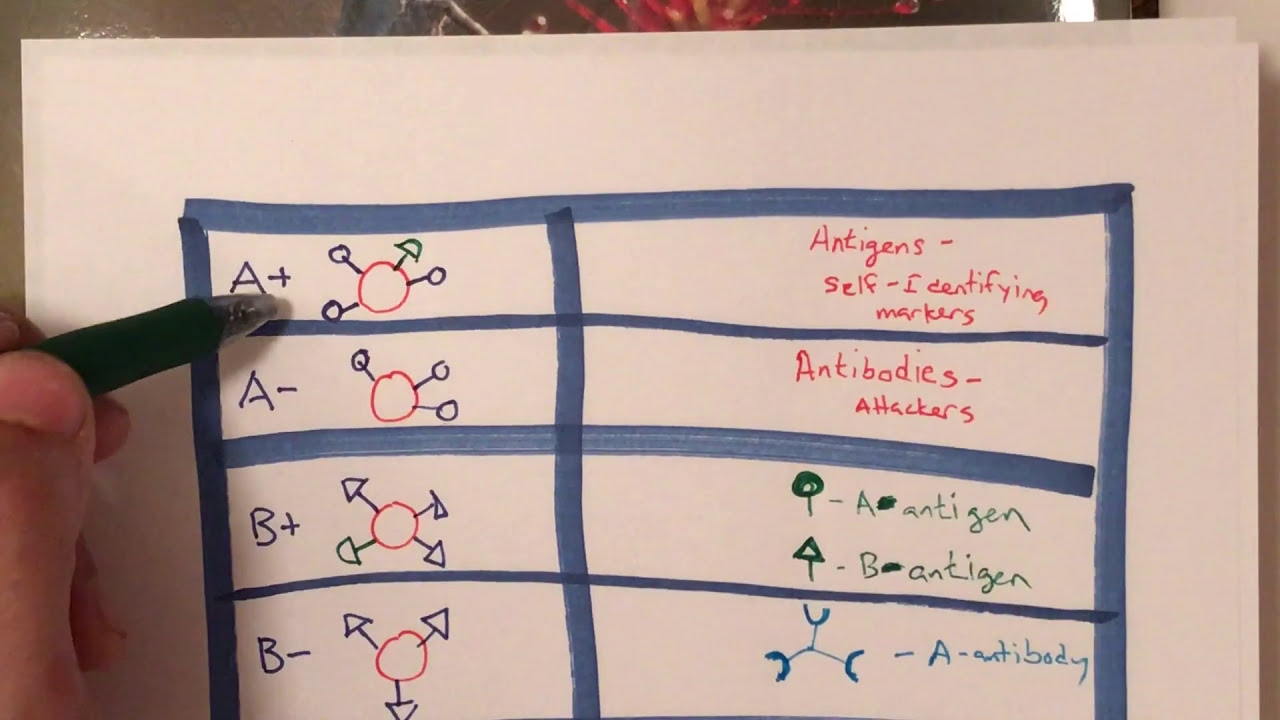 A+
Antigens -
self - Identifying
markers
A-
Antibodies -
Attackers
B+
- A antigen
- B antigen
B-
- A-antibody